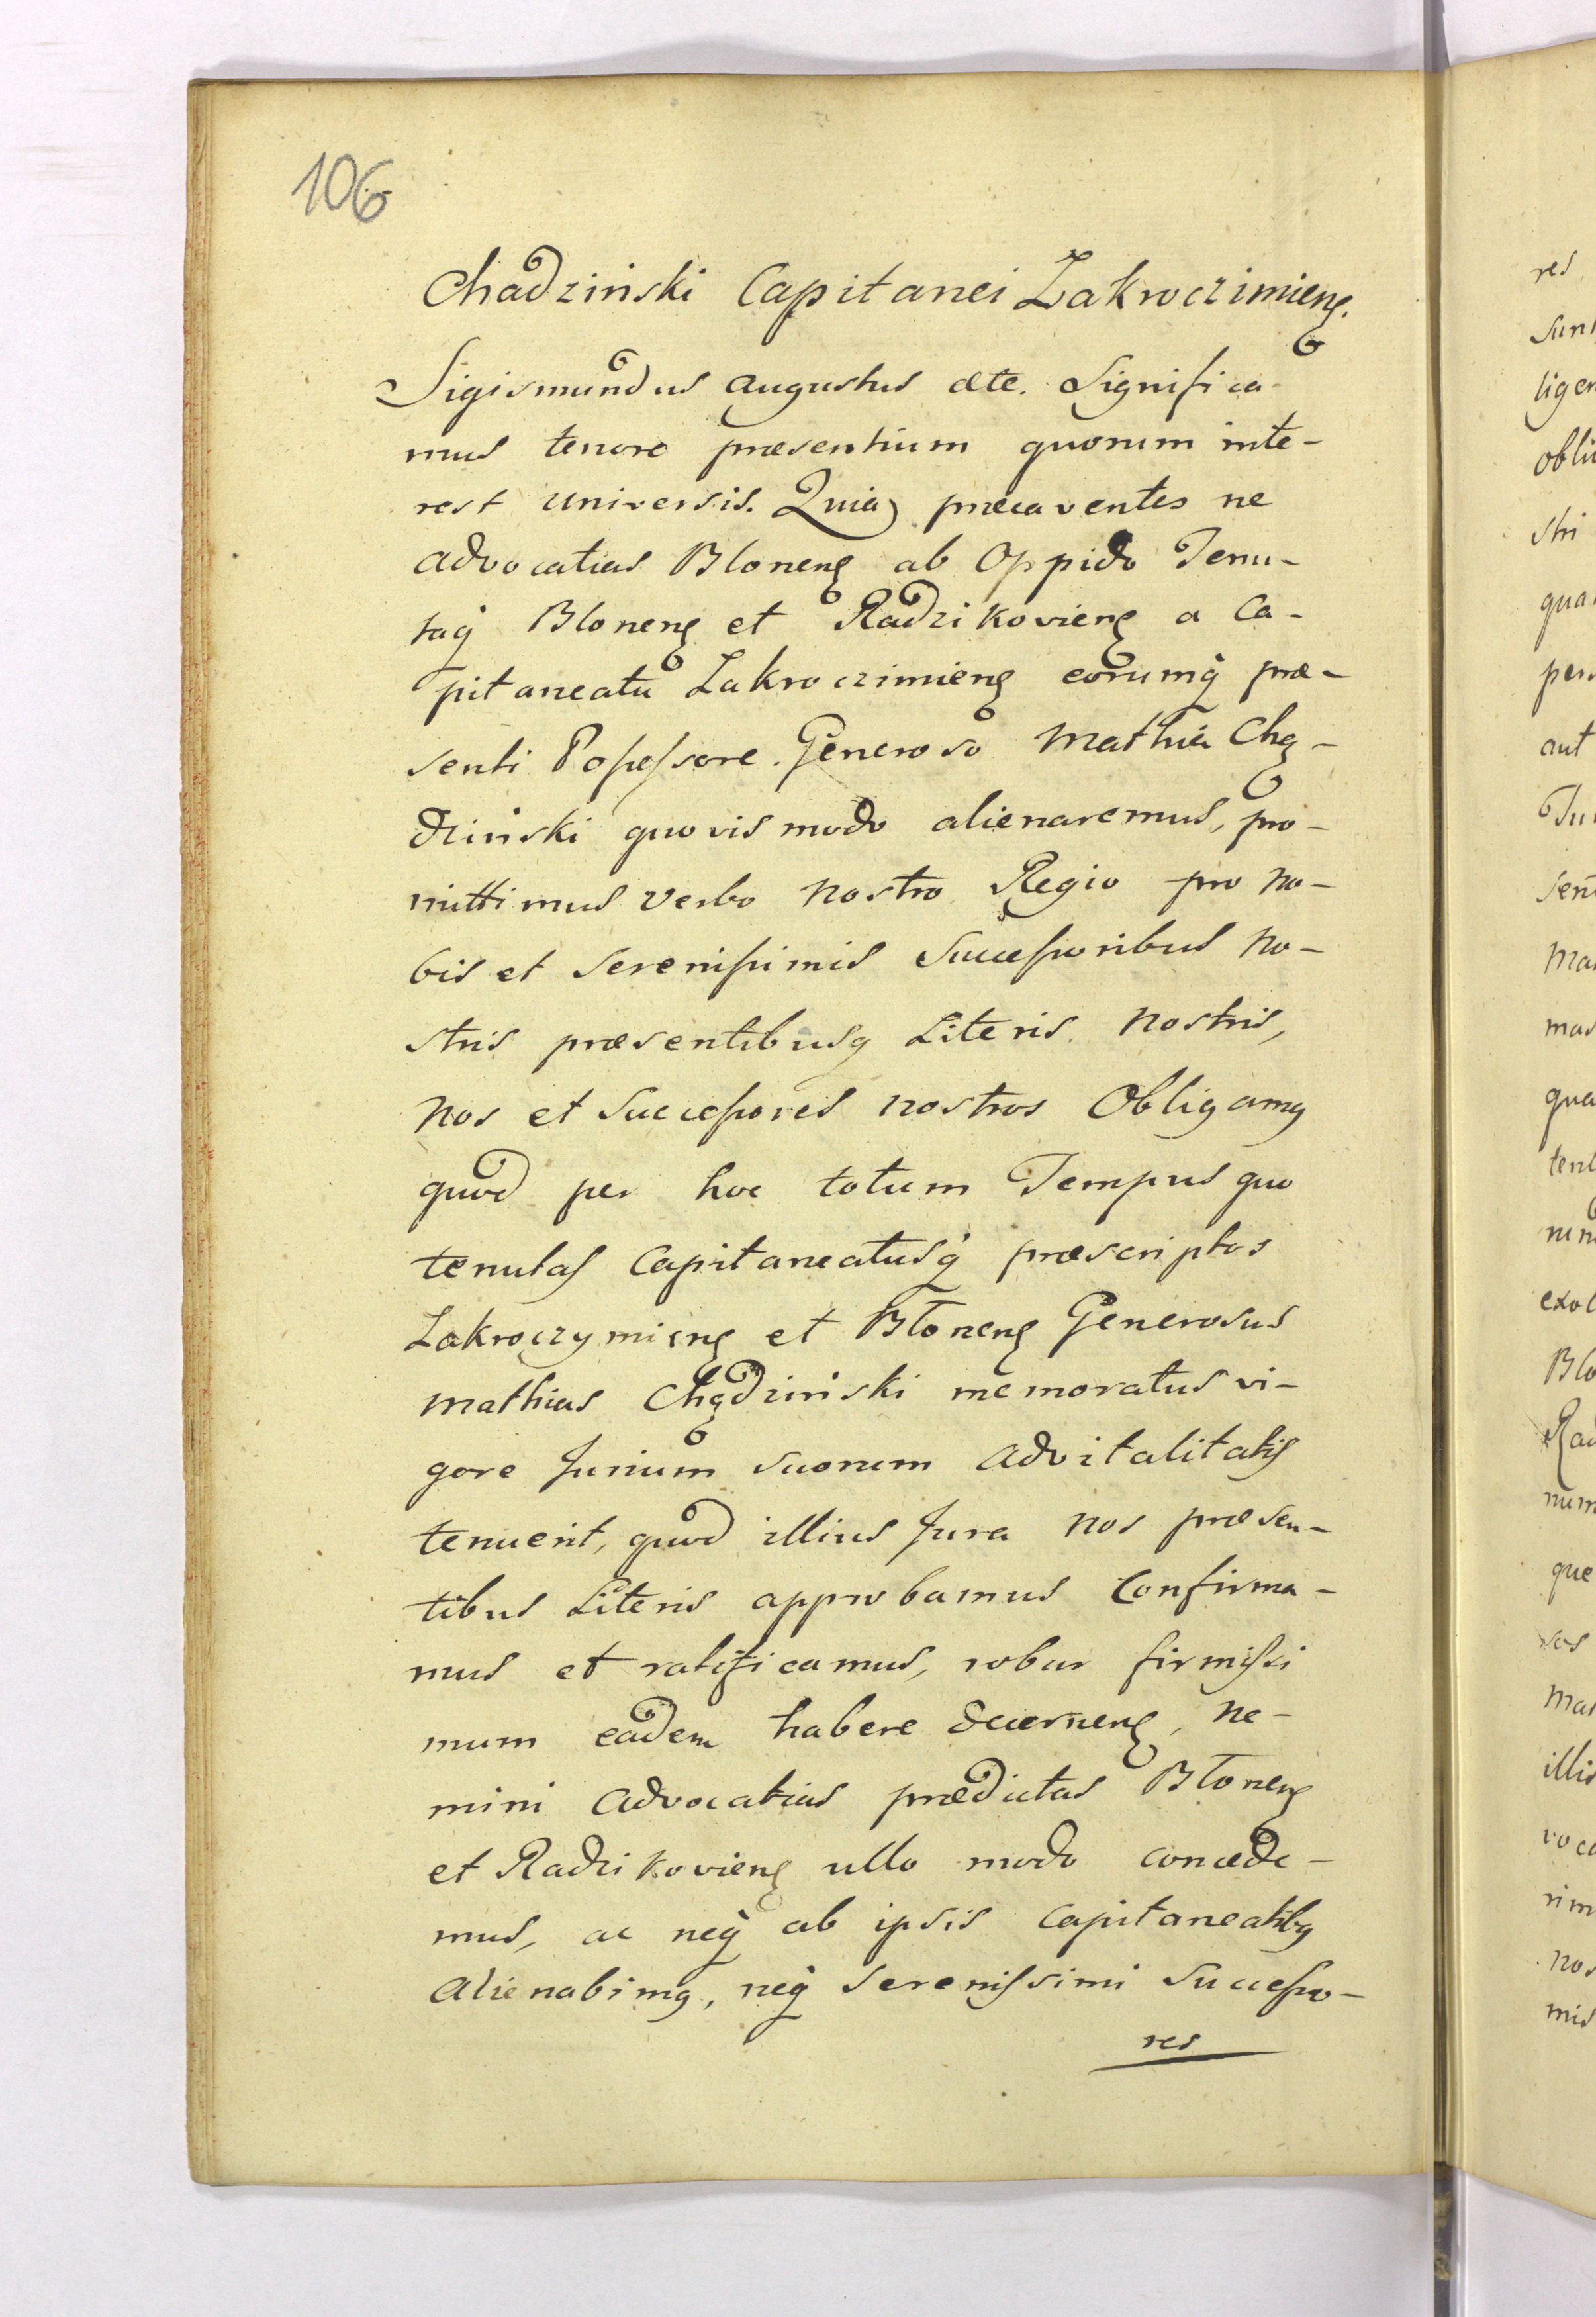 106
Chądziński Capitanei Zakroczimien̄.
Sigismundus Augustus &te. Significa-
mus tenore præsentium quorum inte-
rest Universis. Quia præcaventes ne
Advocatias Blonen̄ ab Oppido Tenu-
taq́ Blonen̄ et Radzikovien̄ a Ca-
pitaneatu Zakroczimien̄ eorumq́ præ-
senti Possessore. Generoso Mathia Chą-
dziński quovis modo alienaremus, pro-
mittimus verbo Nostro Regio pro No-
bis et Serenissimis Successoribus No-
stris præsentibusq Literis Nostris,
Nos et Successores nostros Obligamq
quod per hoc totum Tempus quo
tenutas Capitaneatusq́ præscriptos
Zakroczymien̄ et Błonen̄ Generosus
Mathias Chądziński memoratus vi-
gore Jurium suorum Advitalitatis
tenuerit, quod illius Jura nos præsen-
tibus Literis approbamus Confirma-
mus et ratificamus, robur firmissi
mum eadem habere decernen̄, Ne-
mini Advocatias prædictas Błonen̄
et Radzikovien̄ ullo modo concede-
mus, ac neq́ ab ipsis Capitaneatibq
Alienabimq, neq́ Serenissimi Successo-
res